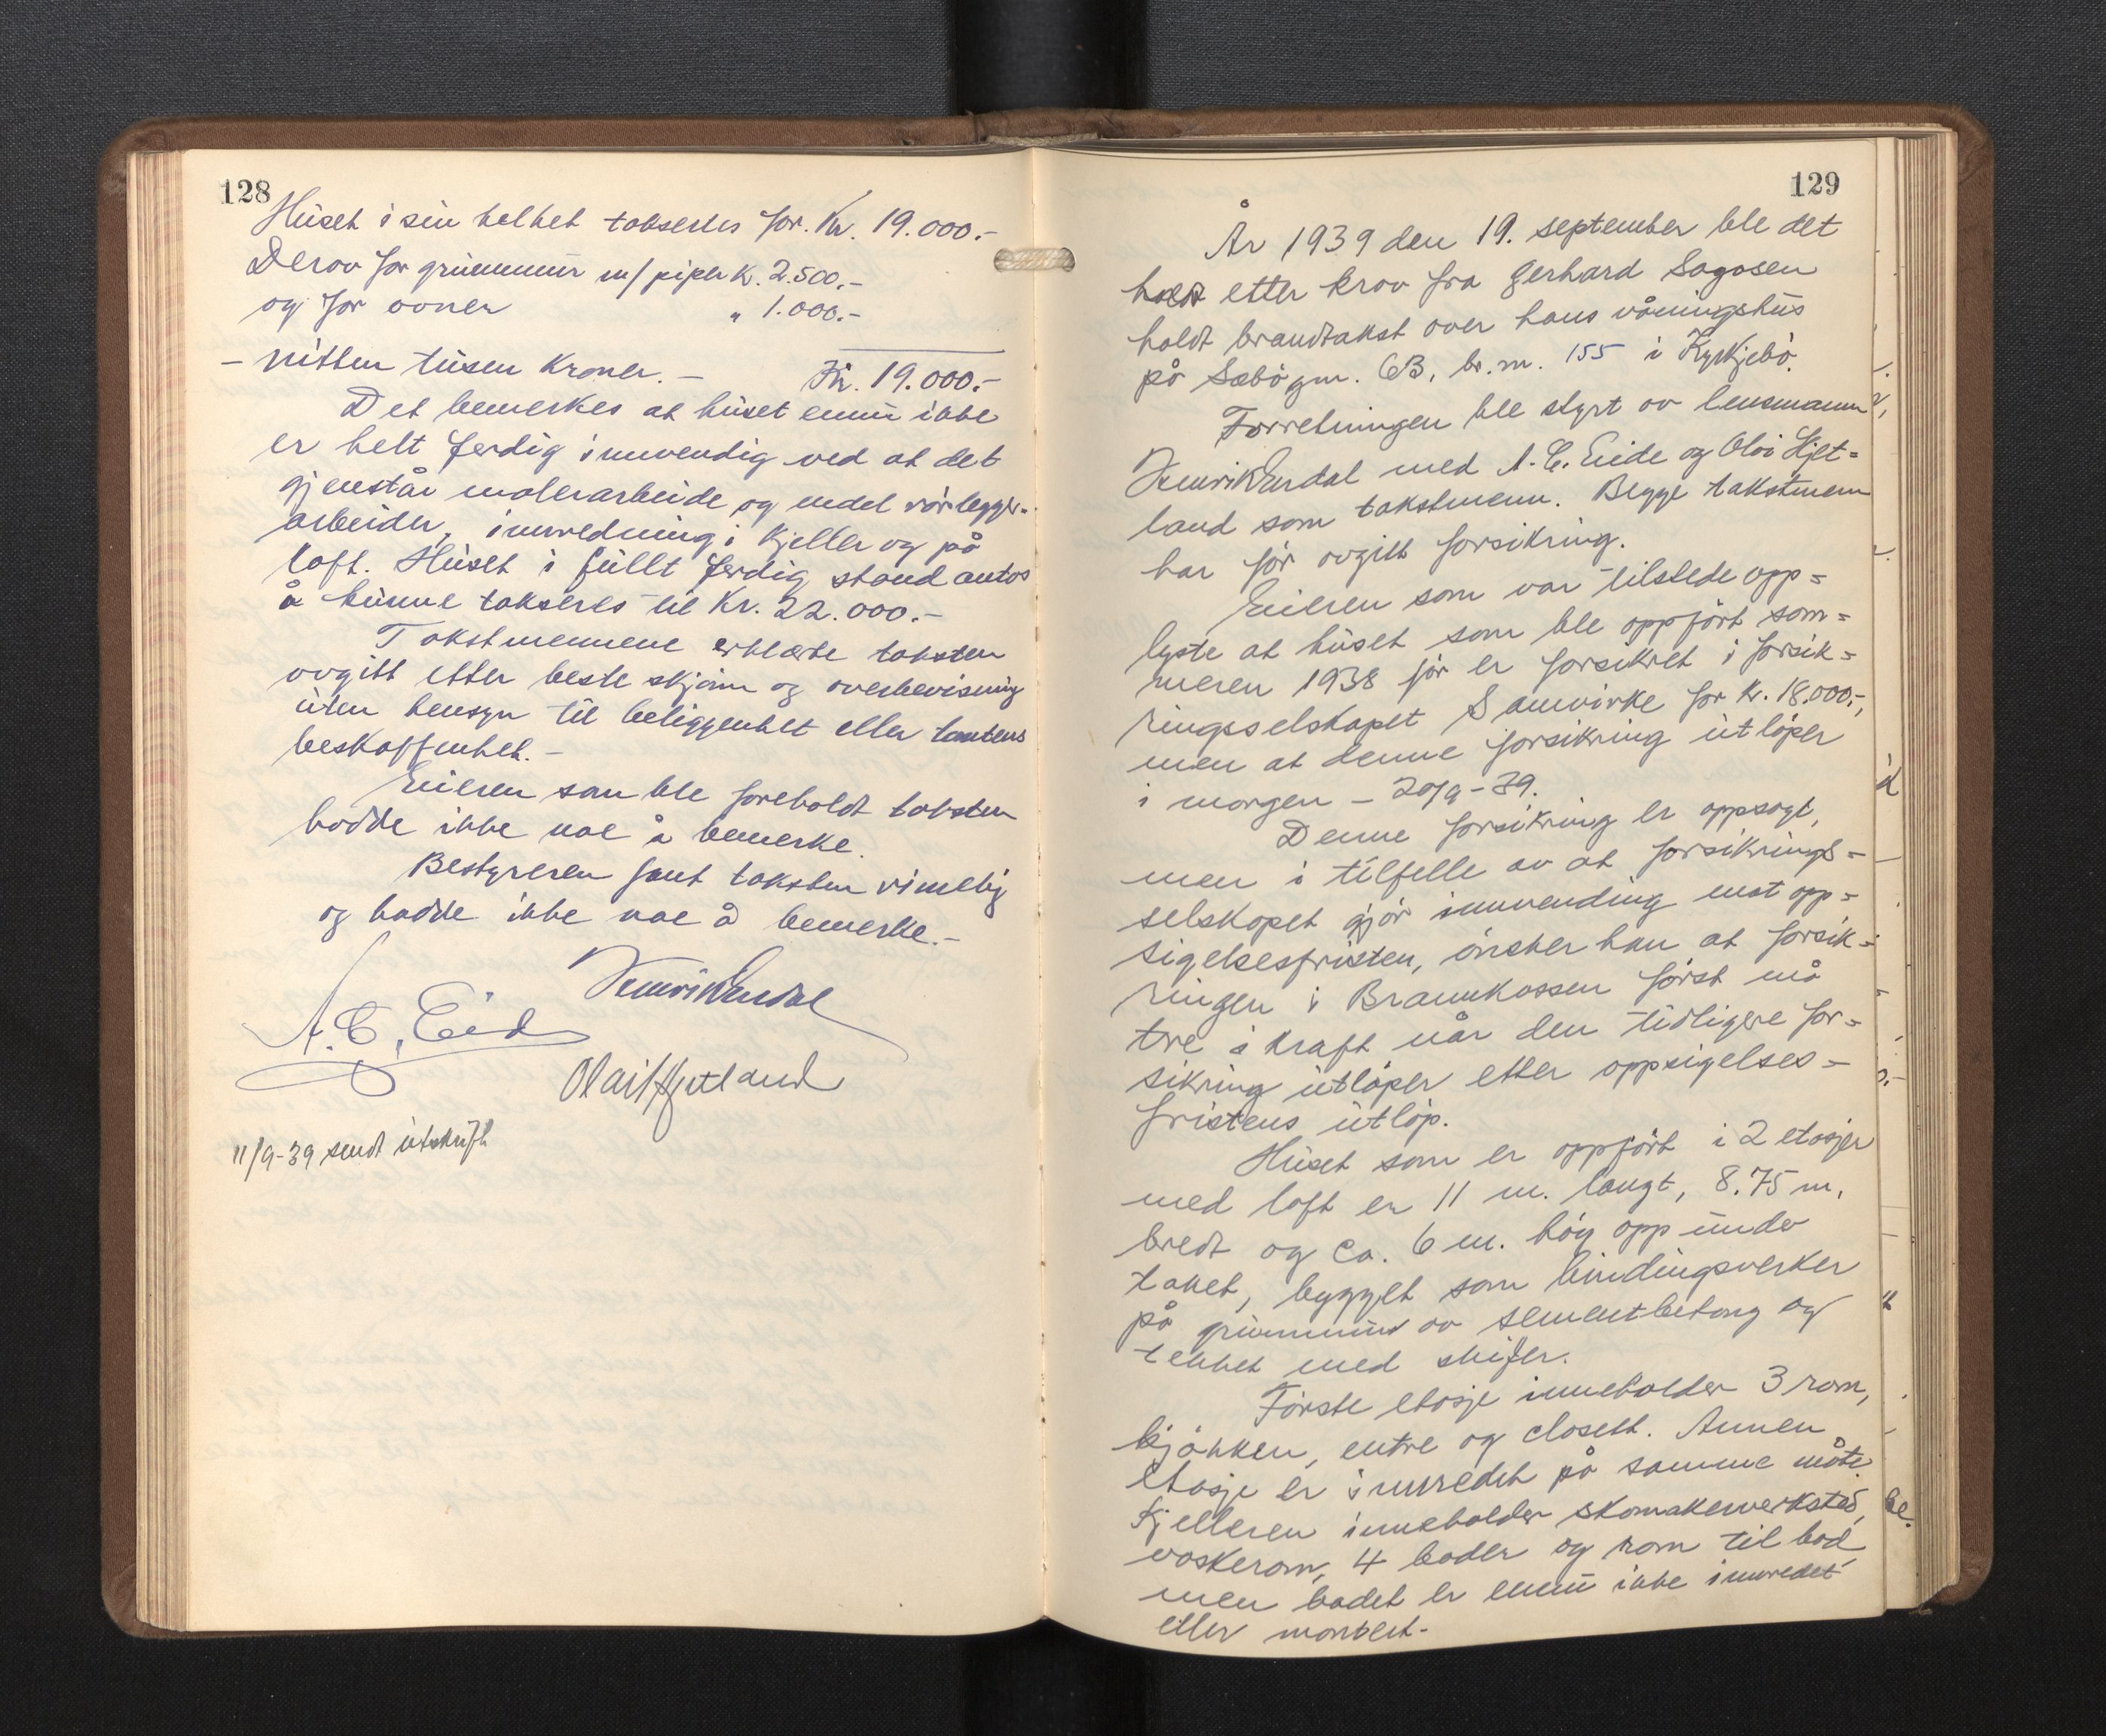 128
Huset i sin helhet takseres for. Kr. 19.000.-
Derav for grunnmur m/piper K. 2.500.-
og for ovner " 1.000.-
- nitten tusen kroner. - Kr. 19.000.-
Det bemerkes at huset ennu ikke
er helt ferdig innvendig ved at det
gjenstår malerarbeide og endel rørlegger-
arbeider, innredning i kjeller og på
loft. Huset i fullt ferdig stand antas
å kunne takseres til Kr. 22.000.-
Takstmennene erklærte taksten
avgitt etter beste skjønn og overbevisning
uten hensyn til beliggenhet eller tomtens
beskaffenhet.-
Eieren som ble foreholdt taksten
hadde ikke noe å bemerke.
Bestyreren fant taksten rimelig
og hadde ikke noe å bemerke.-
Henrik Endal
A. C. Eide
Olai Hjetland
11/9-39 sendt utskrift
129
År 1939 den 19. september ble det
holdt etter krav fra Gerhard Sagosen
holdt brandtakst over hans våningshus
på Sæbø gnr. 63, br.nr. 155 i Kyrkjebø.
Forretningen ble styrt av lensmann
Henrik Endal med A. C. Eide og Olai Hjet=
land som takstmenn. Begge takstmenn
har før avgitt forsikring.
Eieren som var tilstede opp=
lyste at huset som ble oppført som=
meren 1938 før er forsikret i forsik=
ringsselskapet Samvirke for kr. 18.000.-,
men at denne forsikring utløper
i morgen - 20/9-39.
Denne forsikring er oppsagt,
men i tilfelle av at forsikrings=
selskapet gjør innvending mot opp=
sigelsesfristen, ønsker han at forsik=
ringen i Brannkassen først må
tre i kraft når den tidligere for=
sikring utløper etter oppsigelses=
fristens utløp.
Huset som er oppført i 2 etasjer
med loft er 11 m. langt, 8.75 m.
bredt og ca. 6 m. høg opp under
taket, bygget som bindingsverker
på grunnmur av sementbetong og
tekket med skifer.
Første etasje inneholder 3 rom,
kjøkken, entre og closett. Annen
etasje er innredet på samme måte.
Kjelleren inneholder skomakerverksted,
vaskerom, 4 boder og rom til bad,
men badet er ennu ikke innredet
eller montert.-